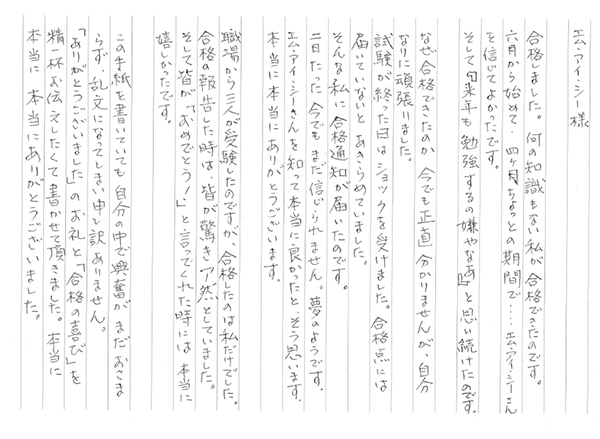 エム・アイ・シー様
合格しました。何の知識もない私が合格できたのです。
六月から始めて、四ヶ月ちょっとの期間で…エム・アイ・シーさん
を信じてよかったです。
そして「来年も勉強するの嫌やなあ」と思い続けたのです。
なぜ合格できたのか今でも正直分かりませんが、自分
なりに頑張りました。
試験が終った日はショックを受けました。合格点には
届いていないとあきらめていました。
そんな私に合格通知が届いたのです。
二日たった今でもまだ信じられません。夢のようです。
エム・アイ・シーさんを知って本当に良かったとそう思います。
本当に本当にありがとうございます。
職場から三人が受験したのですが、合格したのは私だけでした。
合格の報告した時は、皆が驚きア然としていました。
そして皆が「おめでとう!」と言ってくれた時には本当に
嬉しかったです。
この手紙を書いていても自分の中で興奮がまだおさま
らず、乱文になってしまい申し訳ありません。
「ありがとうございました」のお礼と「合格の喜び」を
精一杯お伝えしたくて書かせて頂きました。本当に
本当に本当にありがとうございました。